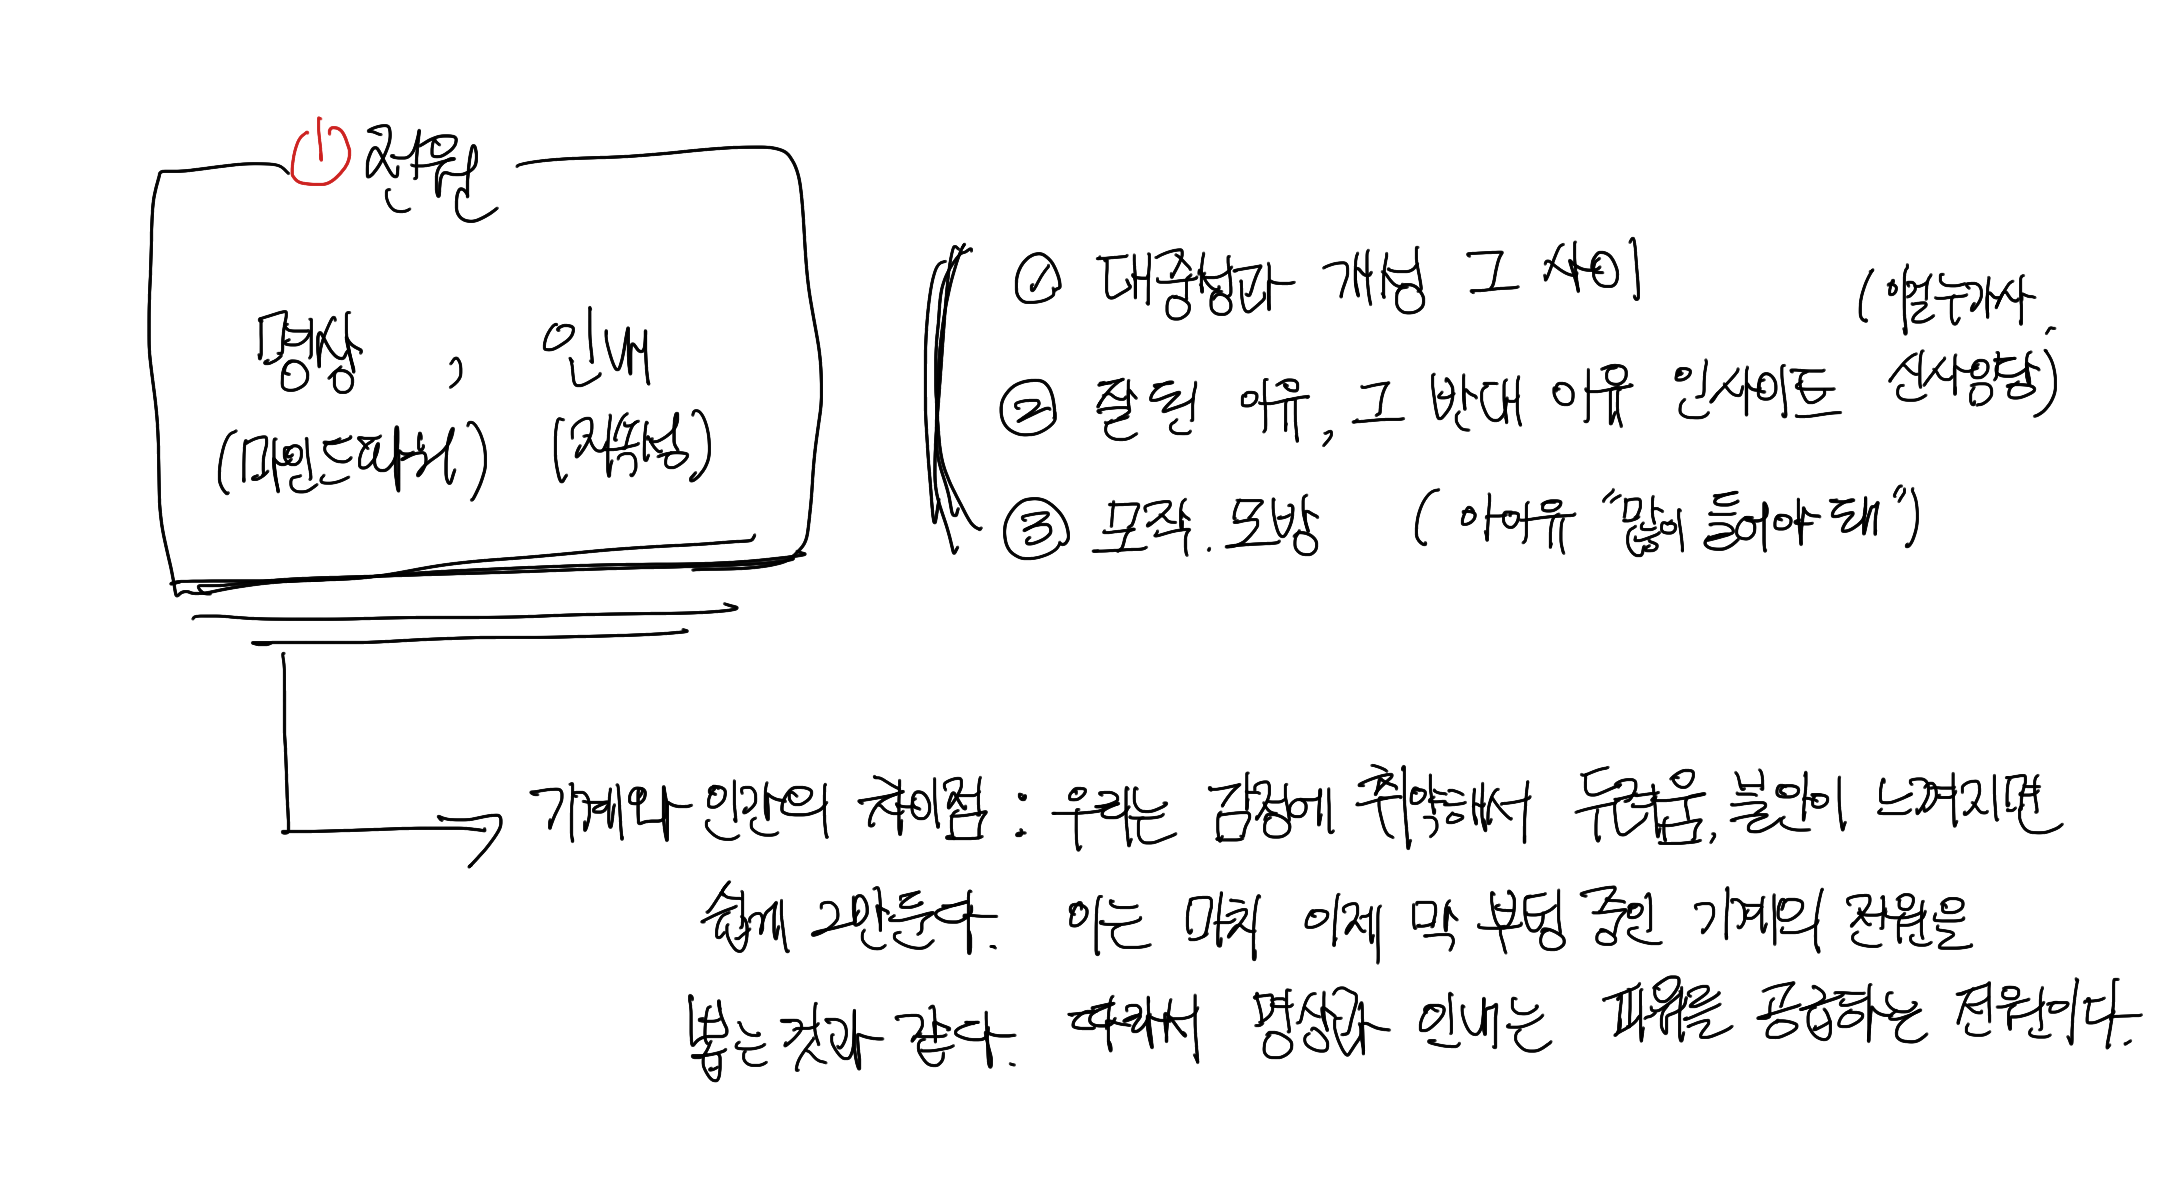 전원
명상 , 인내
(마인드파워) (지속성)
① 대중성과 개성 그 사이
② 잘된 이유, 그 반대 이유 인사이트 (이얼누가사.
신사양당)
③ 모작. 모방 (아이유 "많이 들어야 돼")
기계와 인간의 차이점 : 우리는 감정에 취약해서 두려움, 불안이 느껴지면
쉽게 그만둔다. 이는 마치 이제 막 부팅 중인 기계의 전원을
뽑는 것과 같다. 따라서 명상과 인내는 파워를 공급하는 전원이다.